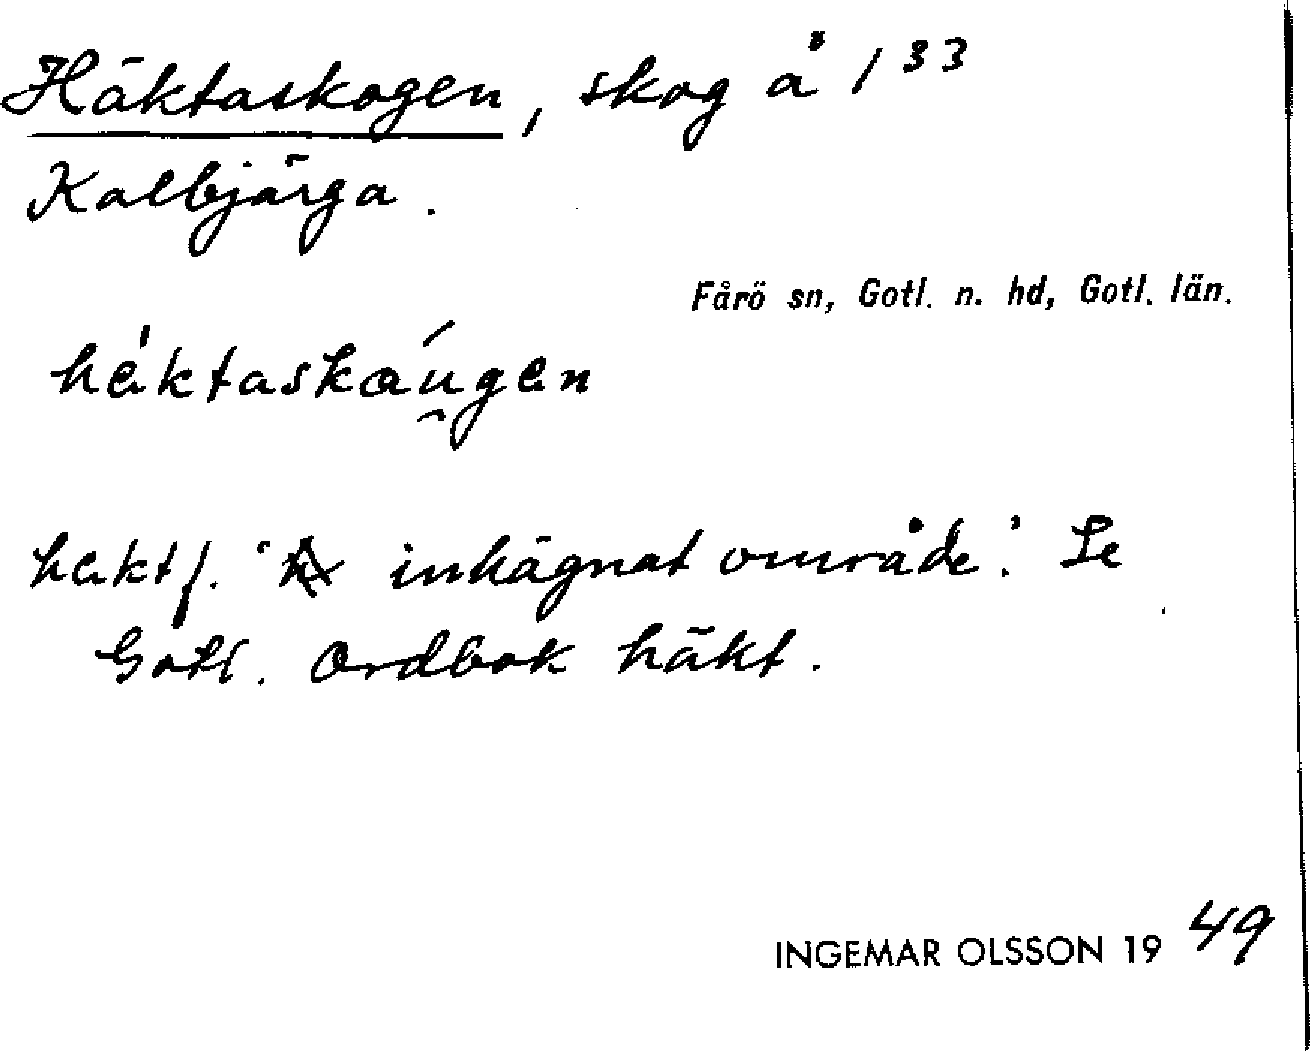 Häktaskogen, skog å 133
Kalbjärga.
Fårö sn, Gotl. n. hd, Gotl. län.
häktaskáu̯gän
häkt f. 'inhägnat område'. Se
Gotl. Ordbok häkt.
INGEMAR OLSSON 19 49